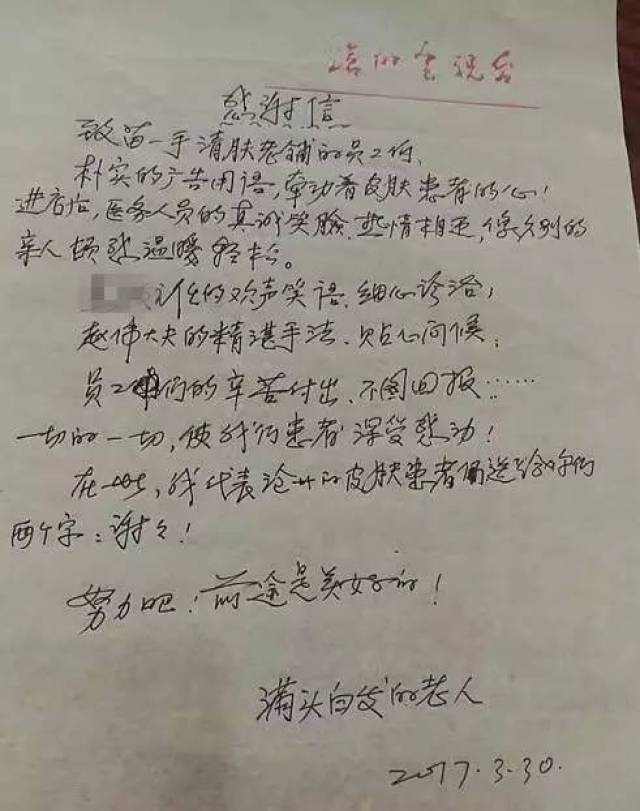 沧州电视台
感谢信
致苗一手清肤老铺的员工们、
朴实的广告用语,牵动着皮肤患者的心!
进店后,医务人员的真诚笑脸、热情相迎,像久别的
亲人顿感温暖轻松。
的欢声笑语、细心诊治;
赵伟大夫的精湛手法、贴心问候;
员工们的辛苦付出、不图回报……
一切的一切,使我们患者深受感动!
在此,我代表沧州的皮肤患者们送给你们
两个字:谢々!
努力吧!前途是美好的!
满头白发的老人
2017.3.30.